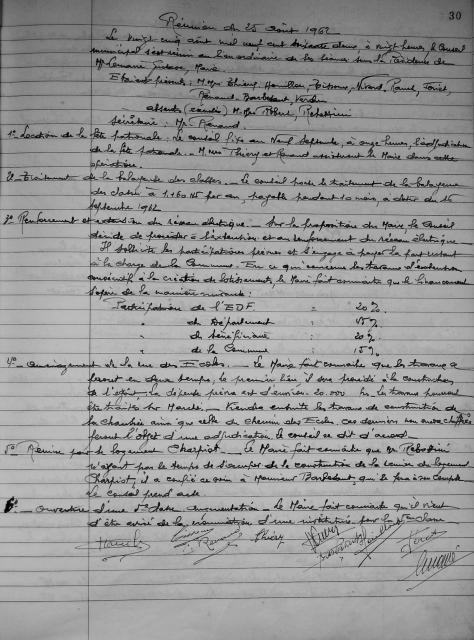 30
Réunion du 25 août 1962
Le vingt cinq août mil neuf cent soixante deux, à vingt heures, le Conseil
municipal s'est réuni au lieu ordinaire de ses séances sous la Présidence de
Mr Gustave, Maire
Etaient présents : M. Mrs Thiery,
Renaud, Bombedant, Verdin
absents (excusés) : M. Mrs Robert, Rebattini
Secrétaire : Mr Renaud.
1° Location de la fête patronale. Le Conseil fixe au Neuf Septembre, à onze heures, l'adjudication
de la fête patronale. M. Mrs Thiery et Renaud assisteront le Maire dans cette
opération.
2° Traitement de la balayeuse des classes. Le Conseil porte le traitement de la balayeuse
des classes à par an, payable pendant 10 mois, à dater du 1er
Septembre 1962
3° Renforcement et extension du réseau électrique. Sur la proposition du Maire le Conseil
décide de procéder à l'extension et au renforcement du réseau électrique
Il sollicite les participations prévues et s'engage à payer la part restant
à la charge de la Commune. En ce qui concerne les travaux d'extension
consécutifs à la création de lotissements, le Maire fait connaître que le financement
s'opère de la manière suivante :
Participation de l'EDF. = 20%
" du Département "
" du bénéficiaire = 20%
" de la Commune " 15%
4° aménagement de la rue des Ecoles. Le Maire fait connaître que les travaux
seront en deux temps, le premier lieu il sera procédé à la construction
de l'égout. La dépense prévue est d'environ 20.000 frs. les travaux peuvent
être traités sur Marché. Viendra ensuite les travaux de construction de
la chaussée ainsi que celle du chemin des Ecoles, ces derniers non encore chiffrés
feront l'objet d'une adjudication, le conseil se dit d'accord.
5° Remise pour le logement Charpiot. Le Maire fait connaître que Mr Rebattini
n'ayant pas le temps de s'occuper de la construction de la remise du logement
Charpiot, il a confié ce soin à Monsieur Bombedant, qui le fera à son compte
le conseil prend acte
6° ouverture d'une classe. Le Maire fait connaître qu'il vient
d'être avisé de la nomination d'une institutrice pour la classe
Renaud Thiery